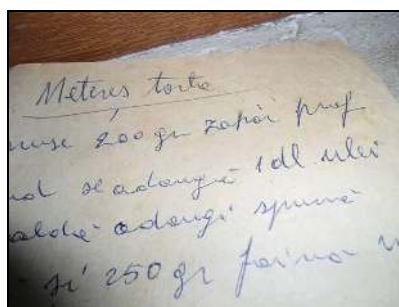 Meteres torta
200 gr zahăr praf
se adaugă 1 dl ulei
caldă adaugi spumă
si 250 gr faina